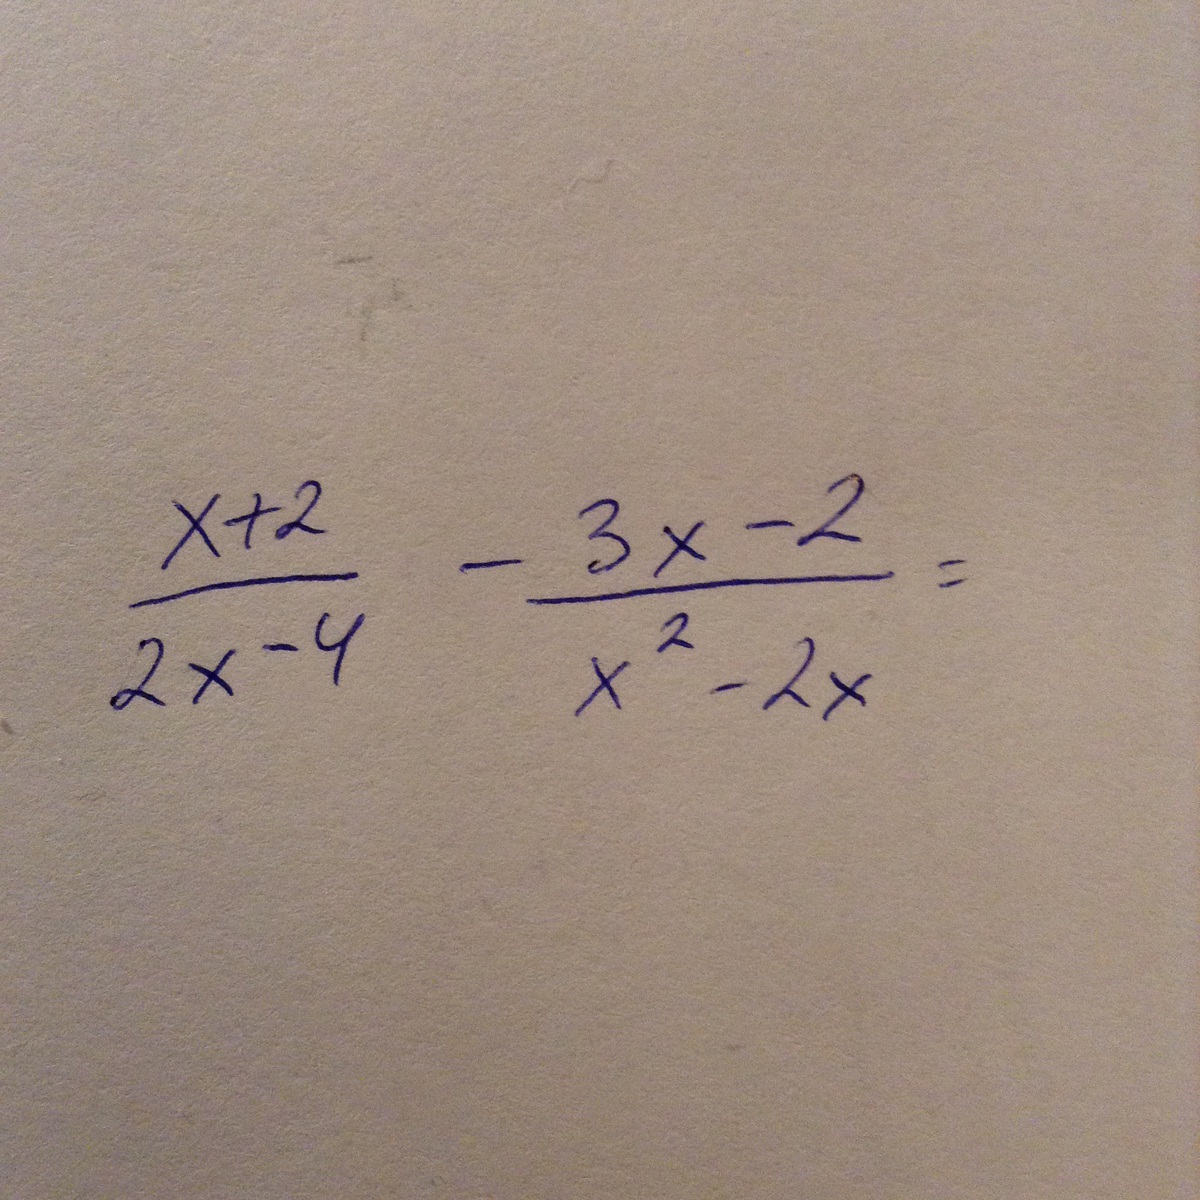 x+2 / 2x-4 - 3x-2 / x² - 2x =